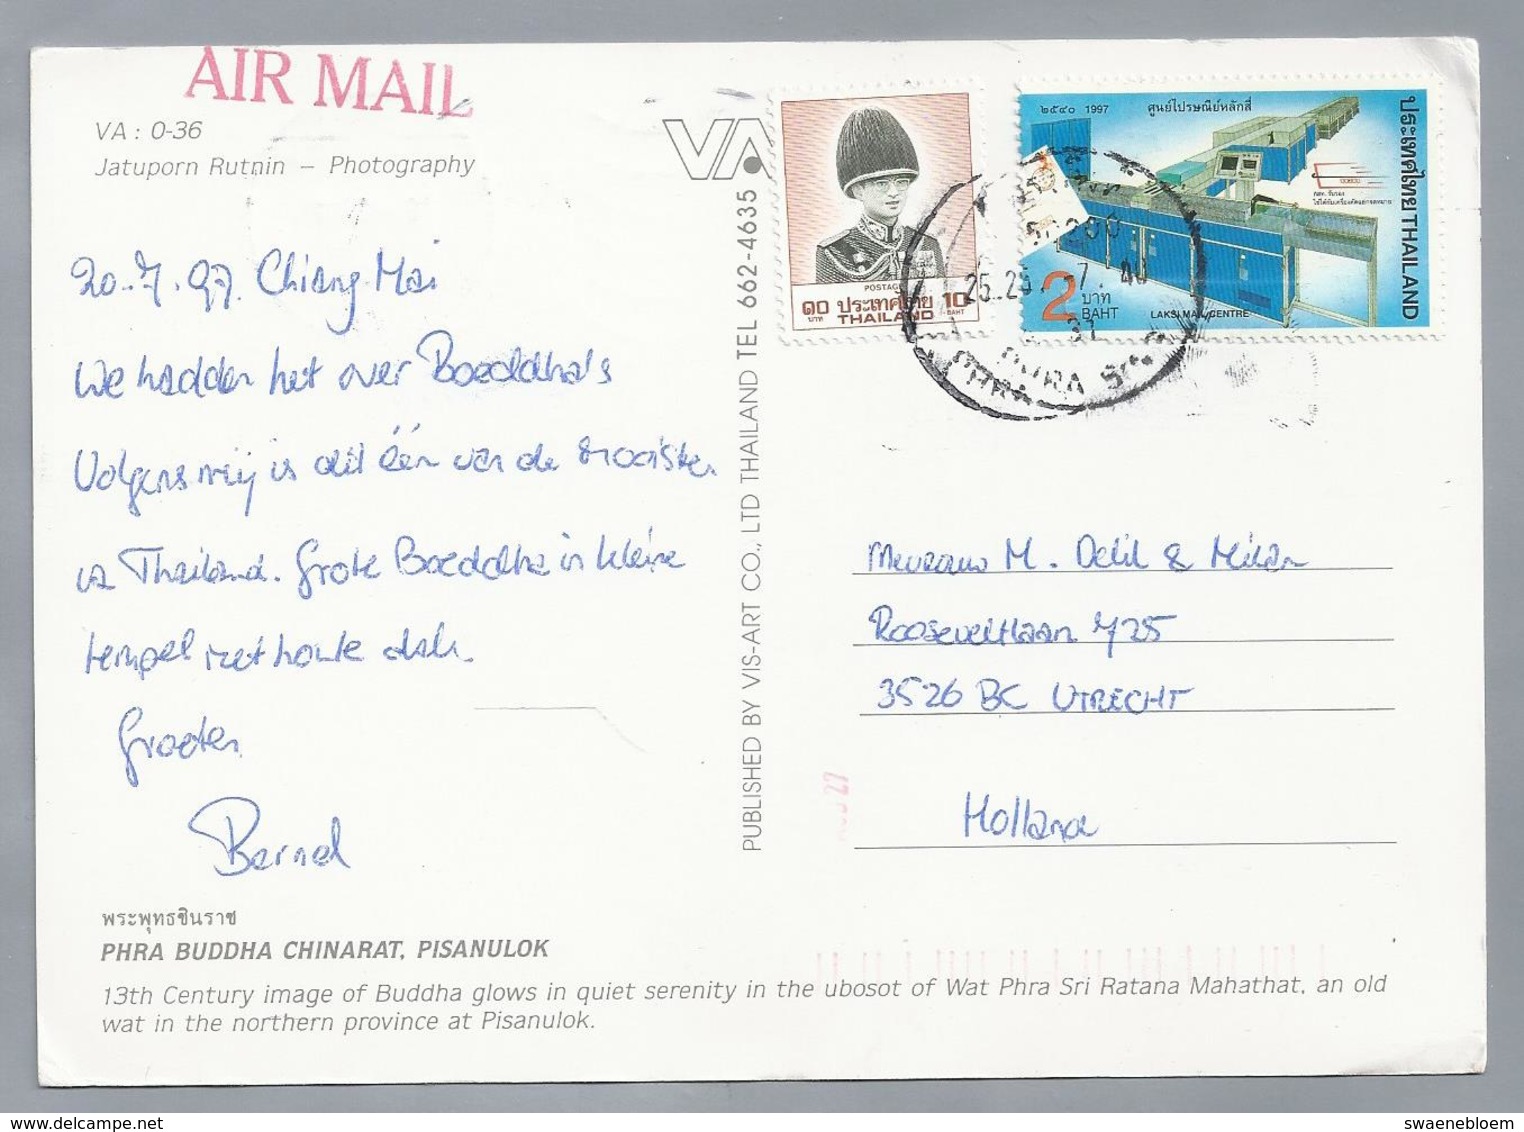 AIR MAIL
VA : 0-36
Jatuporn Rutnin – Photography
VA
20.7.97. Chiang Mai
We hadden het over Boeddha's
Volgens mij is dit één van de mooisten
in Thailand. Grote Boeddha in kleine
tempel met houten dak.
Groeten
Bernel
พระพุทธชินราช
PHRA BUDDHA CHINARAT, PISANULOK
13th Century image of Buddha glows in quiet serenity in the ubosot of Wat Phra Sri Ratana Mahathat, an old
wat in the northern province at Pisanulok.
PUBLISHED BY VIS-ART CO., LTD THAILAND TEL 662-4635
POSTAGE
๑๐ ประเทศไทย 10
บาท THAILAND BAHT
๒๕๔๐ 1997 ศูนย์ไปรษณีย์หลักสี่
ประเทศไทย THAILAND
2 บาท
BAHT
LAKSI MAIL CENTRE
M. Delil & Milan
Rooseveltlaan 725
3526 BC UTRECHT
Holland
www.delcampe.net
swaenebloem